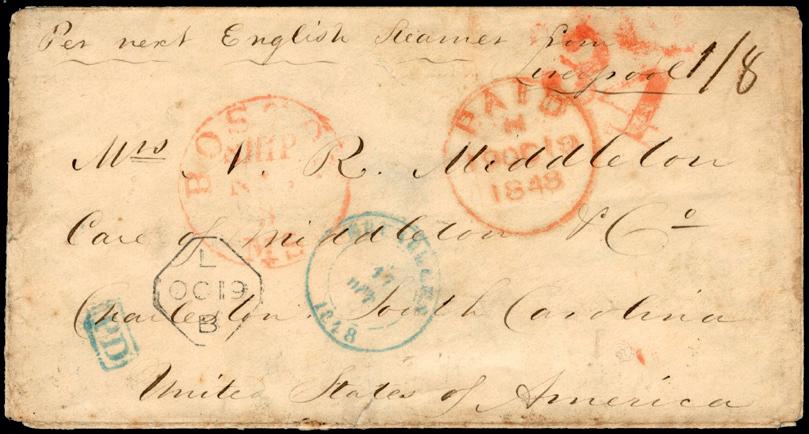 Per next English Steamer from
Liverpool 1/8
PAID
19 OC 19
1848
BOSTON
SHIP
NOV
MS
Mrs N. R. Middleton
Care of Middleton & Co
BRUXELLES
1848
L
OC 19
B
PD
Charleston. South Carolina
United States of America